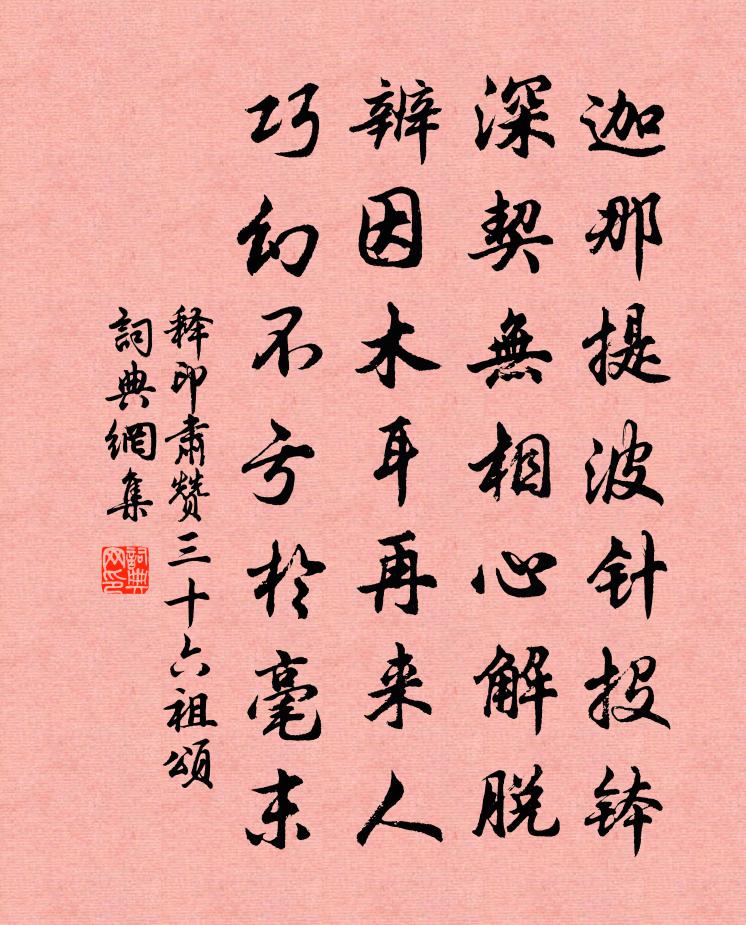 迦那提波针投钵
深契無相心解脱
辨因木耳再来人
巧幻不亏於毫末
释印肃赞三十六祖頌
詞典網集
詞典网印